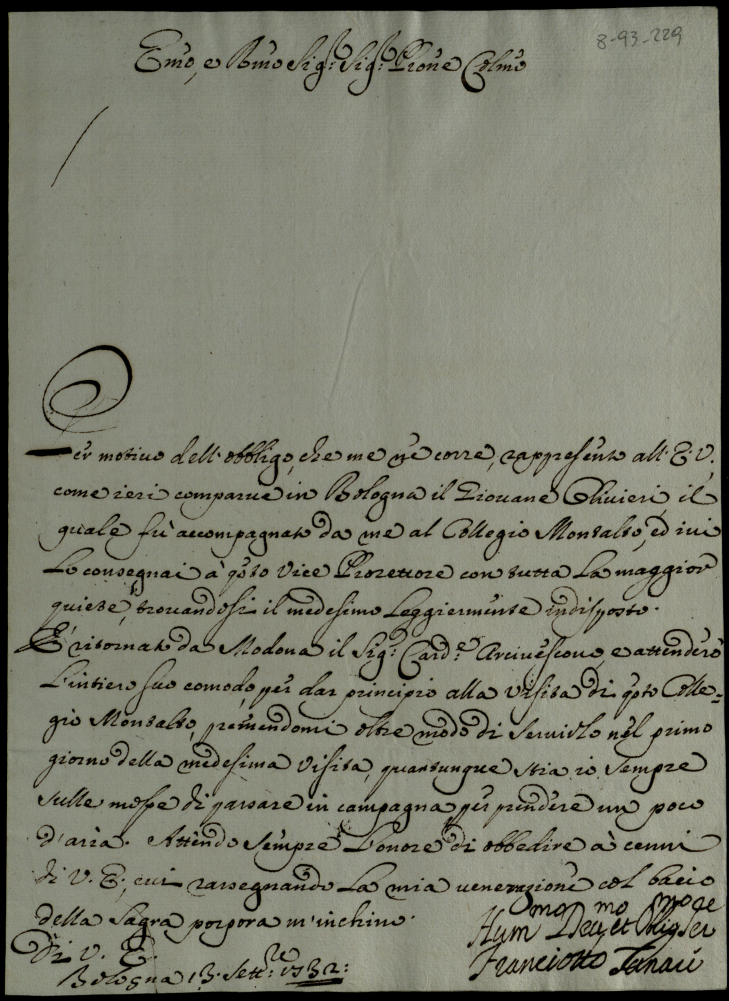 8-93-229
Emo, e Rmo Sig.r Sig.r Prone Colmo
Per motivo dell'obbligo, che me ne corre, rappresento all'E.V.
come ieri comparve in Bologna il Giovane Olivieri, il
quale fù accompagnato da me al Collegio Montalto, ed ivi
lo consegnai à qsto Vice Protettore con tutta la maggior
quiete, trovandosi il medesimo leggiermente indisposto.
È ritornato da Modona il Sig.r Card.e Arcivescovo, e attenderò
l'intiero suo comodo per dar principio alla Visita di qsto Colle=
gio Montalto, premendomi oltre modo di servirlo nel primo
giorno della medesima Visita, quantunque stia io sempre
sulle mosse di passare in campagna per prendere un poco
d'aria. Attendo sempre l'onore di obbedire à cenni
di V. E., cui rassegnando la mia venerazione col bacio
della Sagra porpora m'inchino.
Di V. E.
Bologna 13. Sett.re 1732:
Hum.mo Dev.mo et Oblig.mo Ser.re
Franciotto Tanari